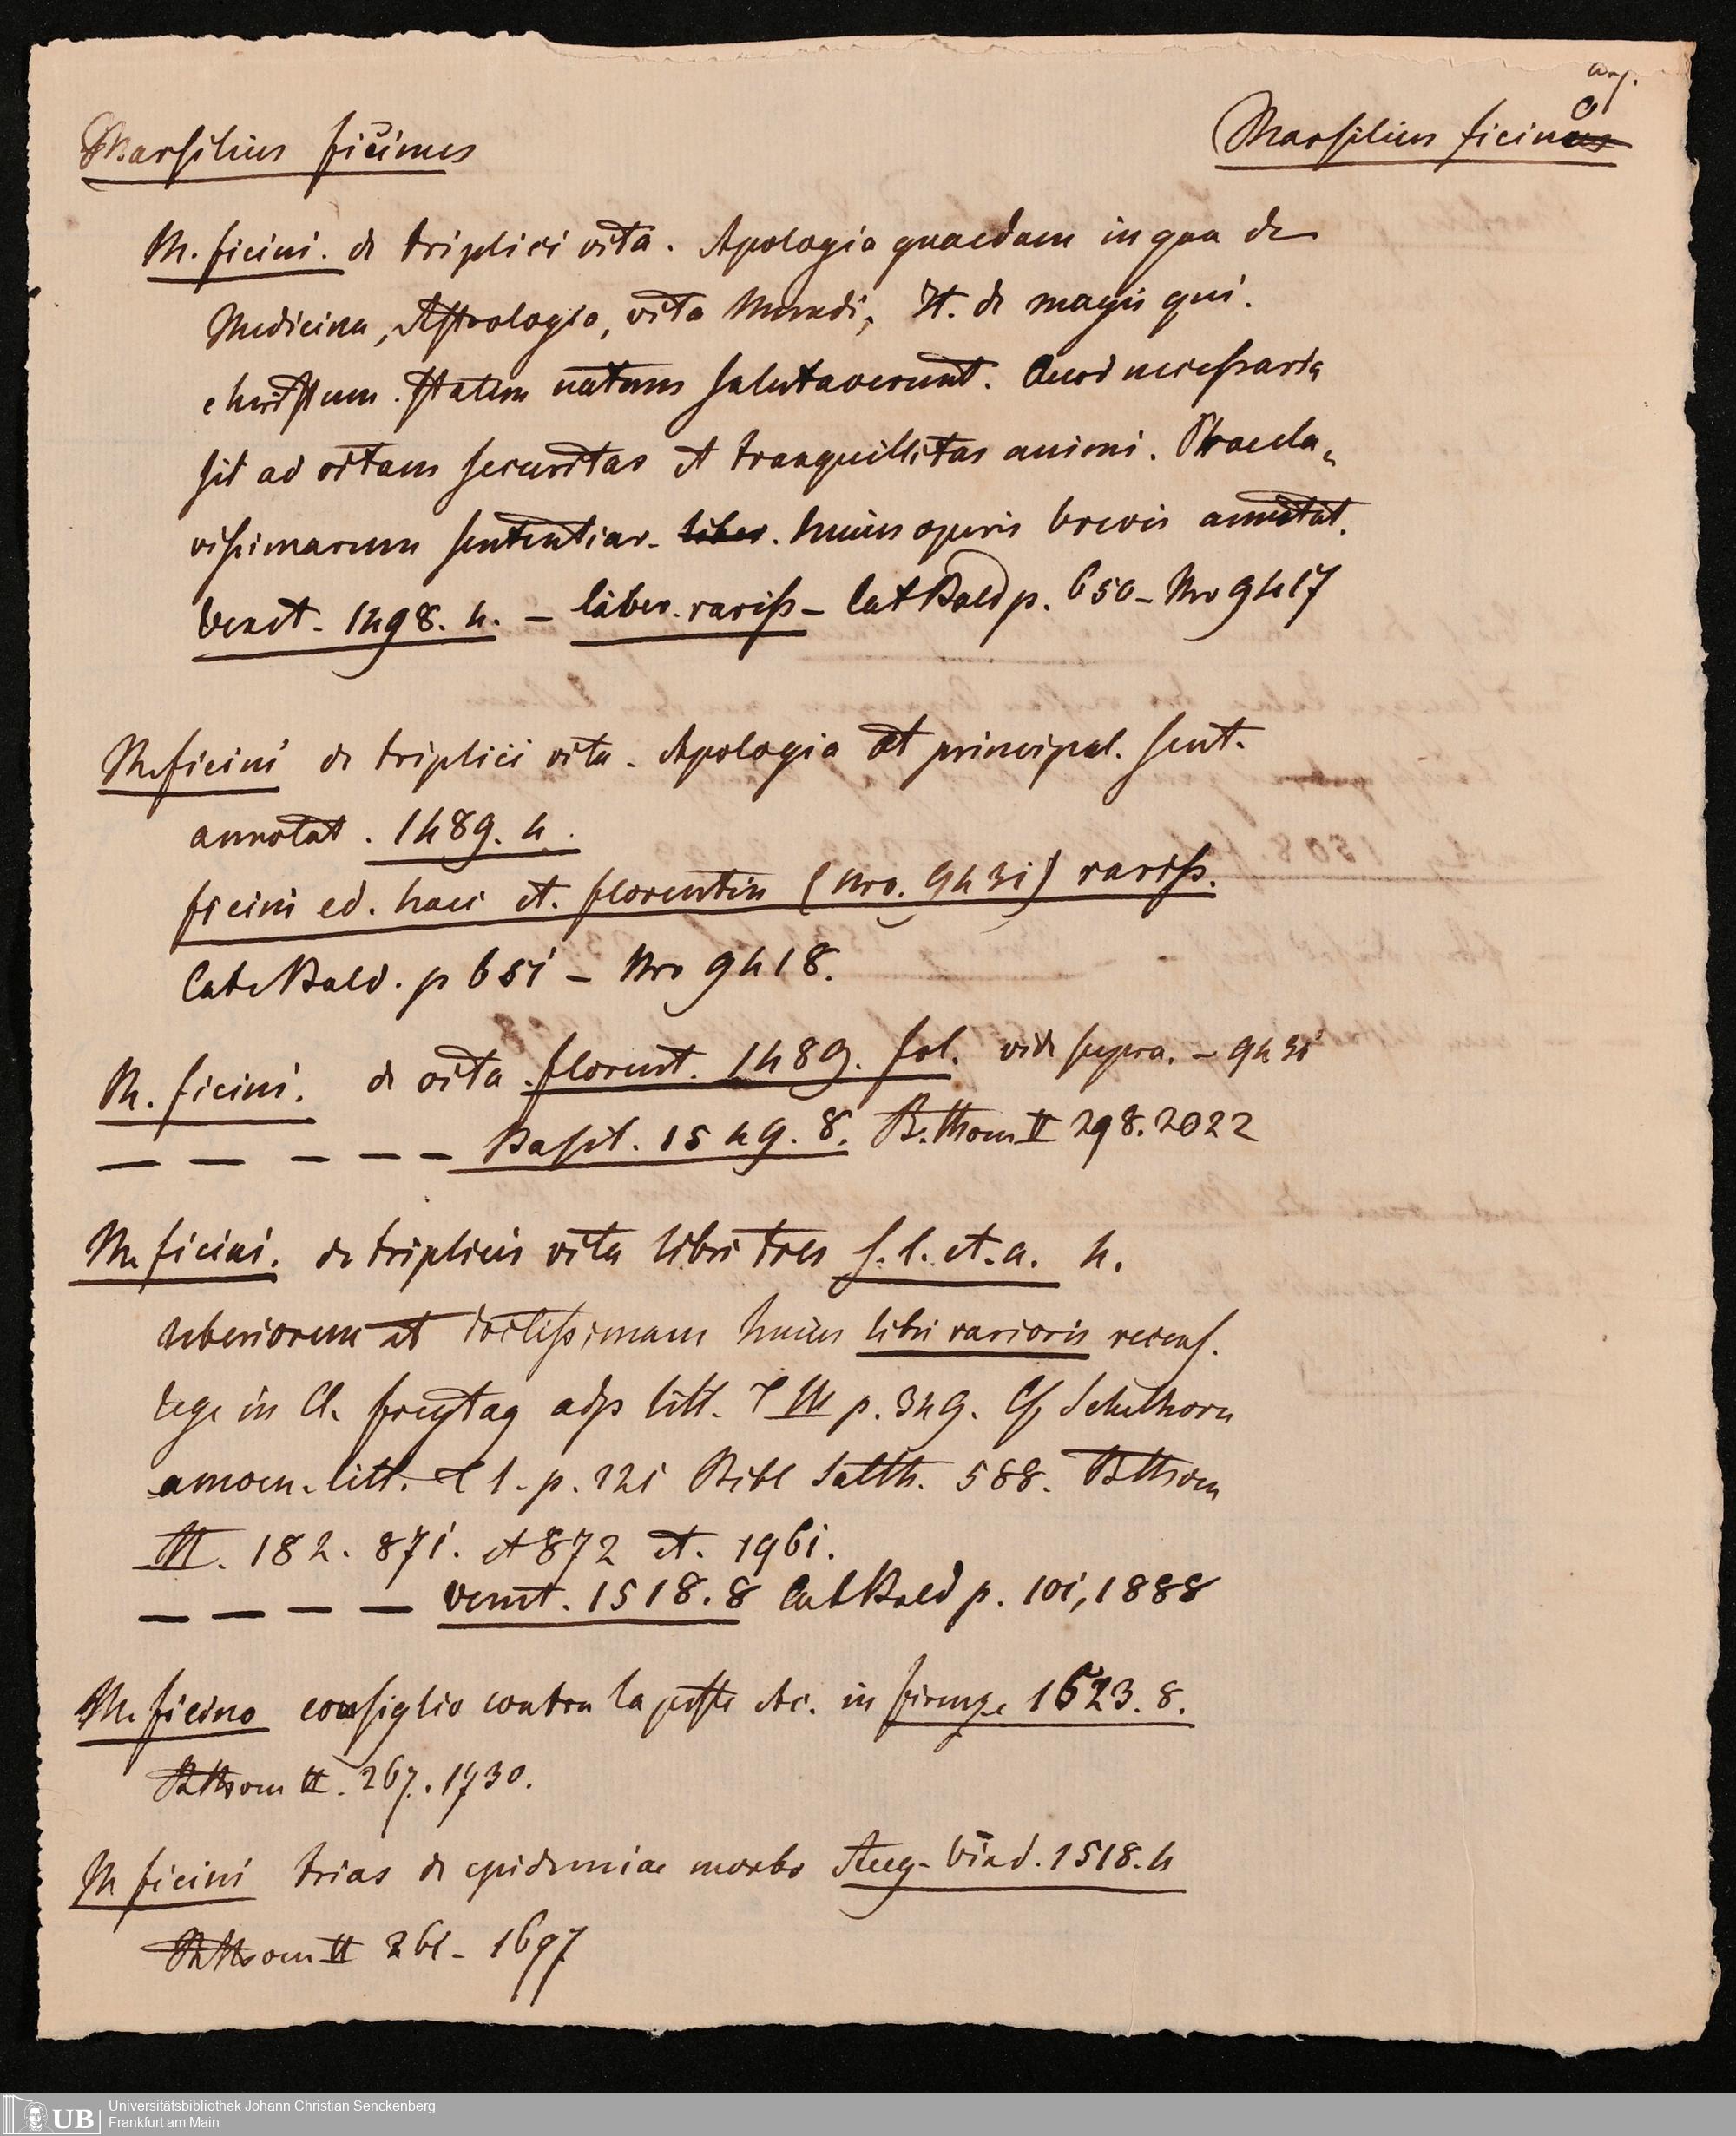 Marsilius ficinus
Marsilius ficino
M. ficini. de triplici vita. Apologia quaedam in qua de
Medicina, Astrologia, vita Mundi, It. de magis qui.
christum. statim natum salutaverunt. Quod necessaria
sit ad vitam securitas et tranquillitas animi. Praecla-
rissimarum sententiar. liber. huius operis brevis annotat.
Venet. 1498. 4. - liber. rariss - Cat Bald p. 650 - Nro 9417
M. ficini de triplici vita. Apologia et principal. sent.
annotat. 1489. 4.
ficini ed. haec et. florentin (nro. 9431) rariss.
Cat. Bald. p 651 - Nro 9418.
M. ficini. de vita. florent. 1489. fol. vide supra. - 9431
— — — — — Basil. 1549. 8. B. Thom II 298. 2022
M. ficini. de triplicis vita libri tres s. l. et. a. 4.
uberiorem et doctissimam huius libri rarioris recens.
lege in Cl. freytag adp litt. T III p. 349. Cf Schelhorn
amoen. litt. T 1. p. 121 Bibl Salth. 588. B Thom
II. 182. 871. et 872 et. 1961.
— — — — Venet. 1518. 8 Cat Bald p. 101, 1888
M. ficino consiglio contra la peste etc. in firenze 1623. 8.
B Thom II. 267. 1730.
M ficini trias de epidemiae morbo Aug. Vind. 1518. 4
B Thom II 261 - 1697
Universitätsbibliothek Johann Christian Senckenberg
Frankfurt am Main
UB